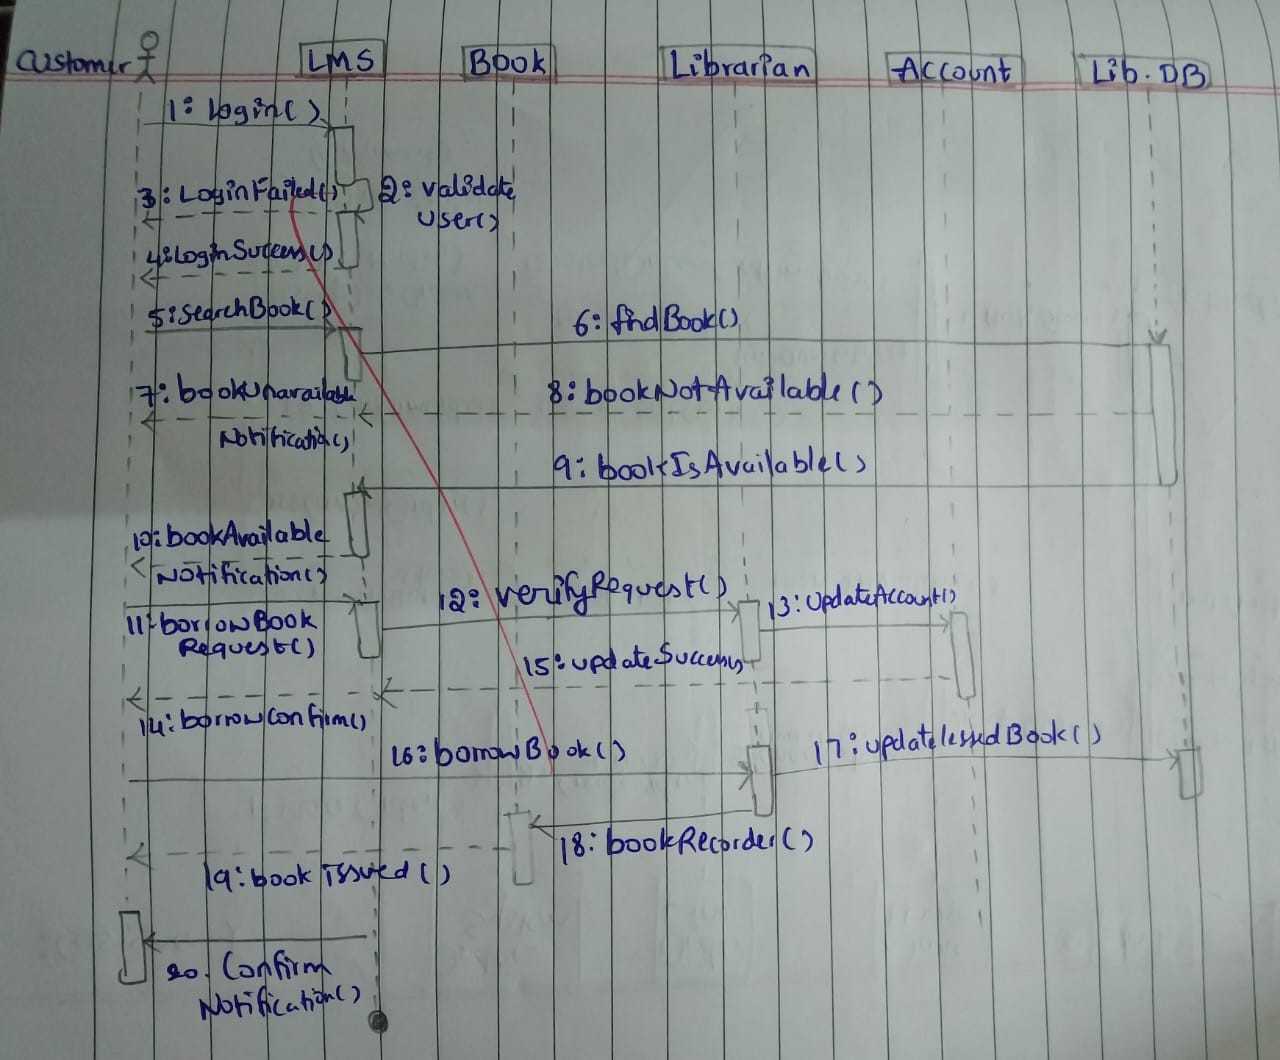 Customer
LMS
Book
Librarian
Account
Lib.DB
1: login()
2: validate
user()
3: LoginFailed()
4: LoginSuccess()
5: searchBook()
6: findBook()
7: bookUnavailable
Notification()
8: bookNotAvailable()
9: bookIsAvailable()
10: bookAvailable
Notification()
11: borrowBook
Request()
12: verifyRequest()
13: UpdateAccount()
15: updateSuccess
14: borrowConfirm()
16: borrowBook()
17: update Book()
18: bookRecorder()
19: book issued ()
20. Confirm
Notification()